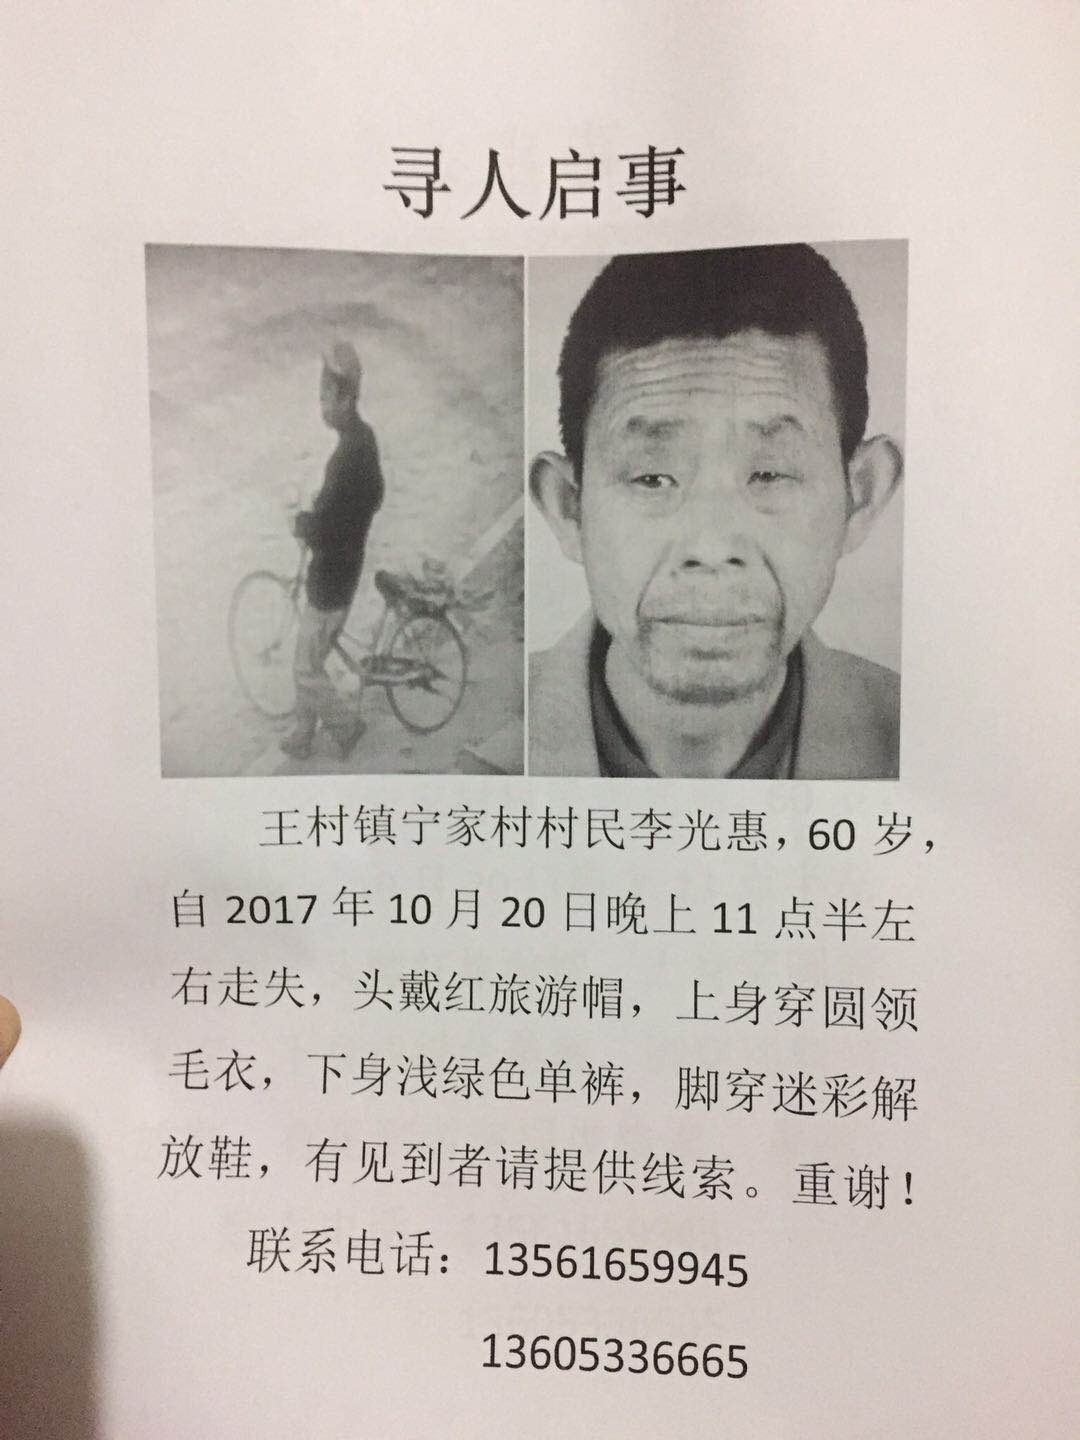 寻人启事
王村镇宁家村村民李光惠，60岁，
自2017年10月20日晚上11点半左
右走失，头戴红旅游帽，上身穿圆领
毛衣，下身浅绿色单裤，脚穿迷彩解
放鞋，有见到者请提供线索。重谢！
联系电话：13561659945
13605336665